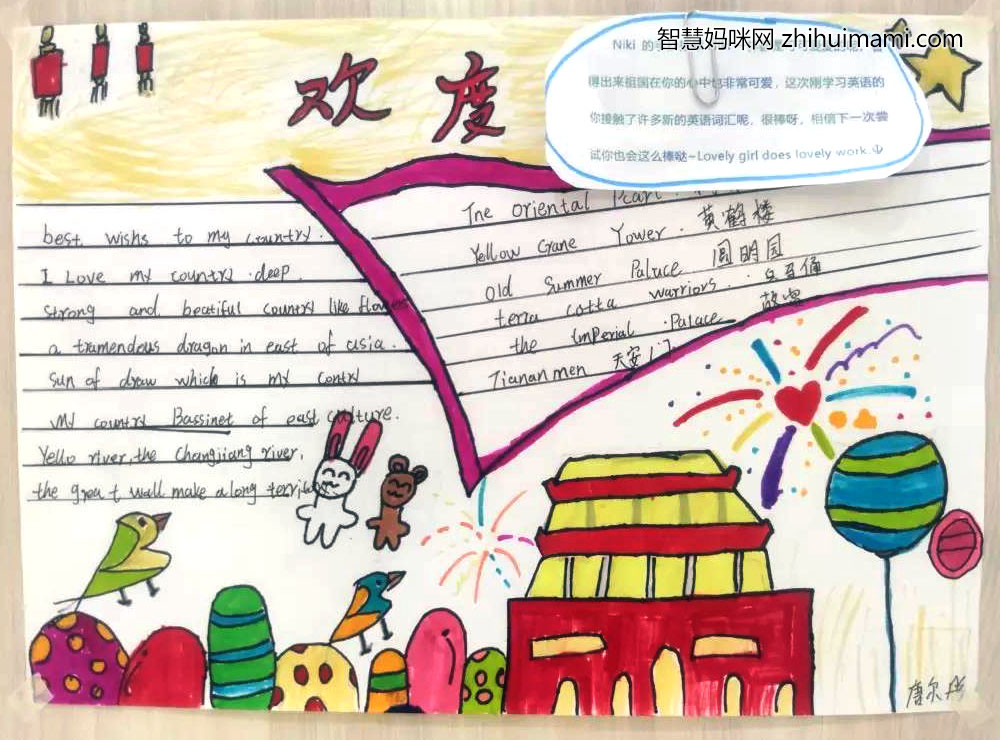 智慧妈咪网 zhihuimami.com
欢度
Niki 的
得出来祖国在你的心中也非常可爱，这次刚学习英语的
你接触了许多新的英语词汇呢，很棒呀，相信下一次尝
试你也会这么棒哒~Lovely girl does lovely work.
best wishs to my country.
I Love my country deep.
strong and beatiful country like flowers
a tramendous dragon in east of asia.
sun of draw which is my contry
My country Bassinet of east culture.
Yello river,the Changjiang river,
the great wall make a long territo
The oriental Pearl.
Yellow Crane Yower. 黄鹤楼
Old Summer Palace 圆明园
terra cotta warriors. 兵马俑
the imperial Palace 故宫
Tiananmen 天安门
唐尔